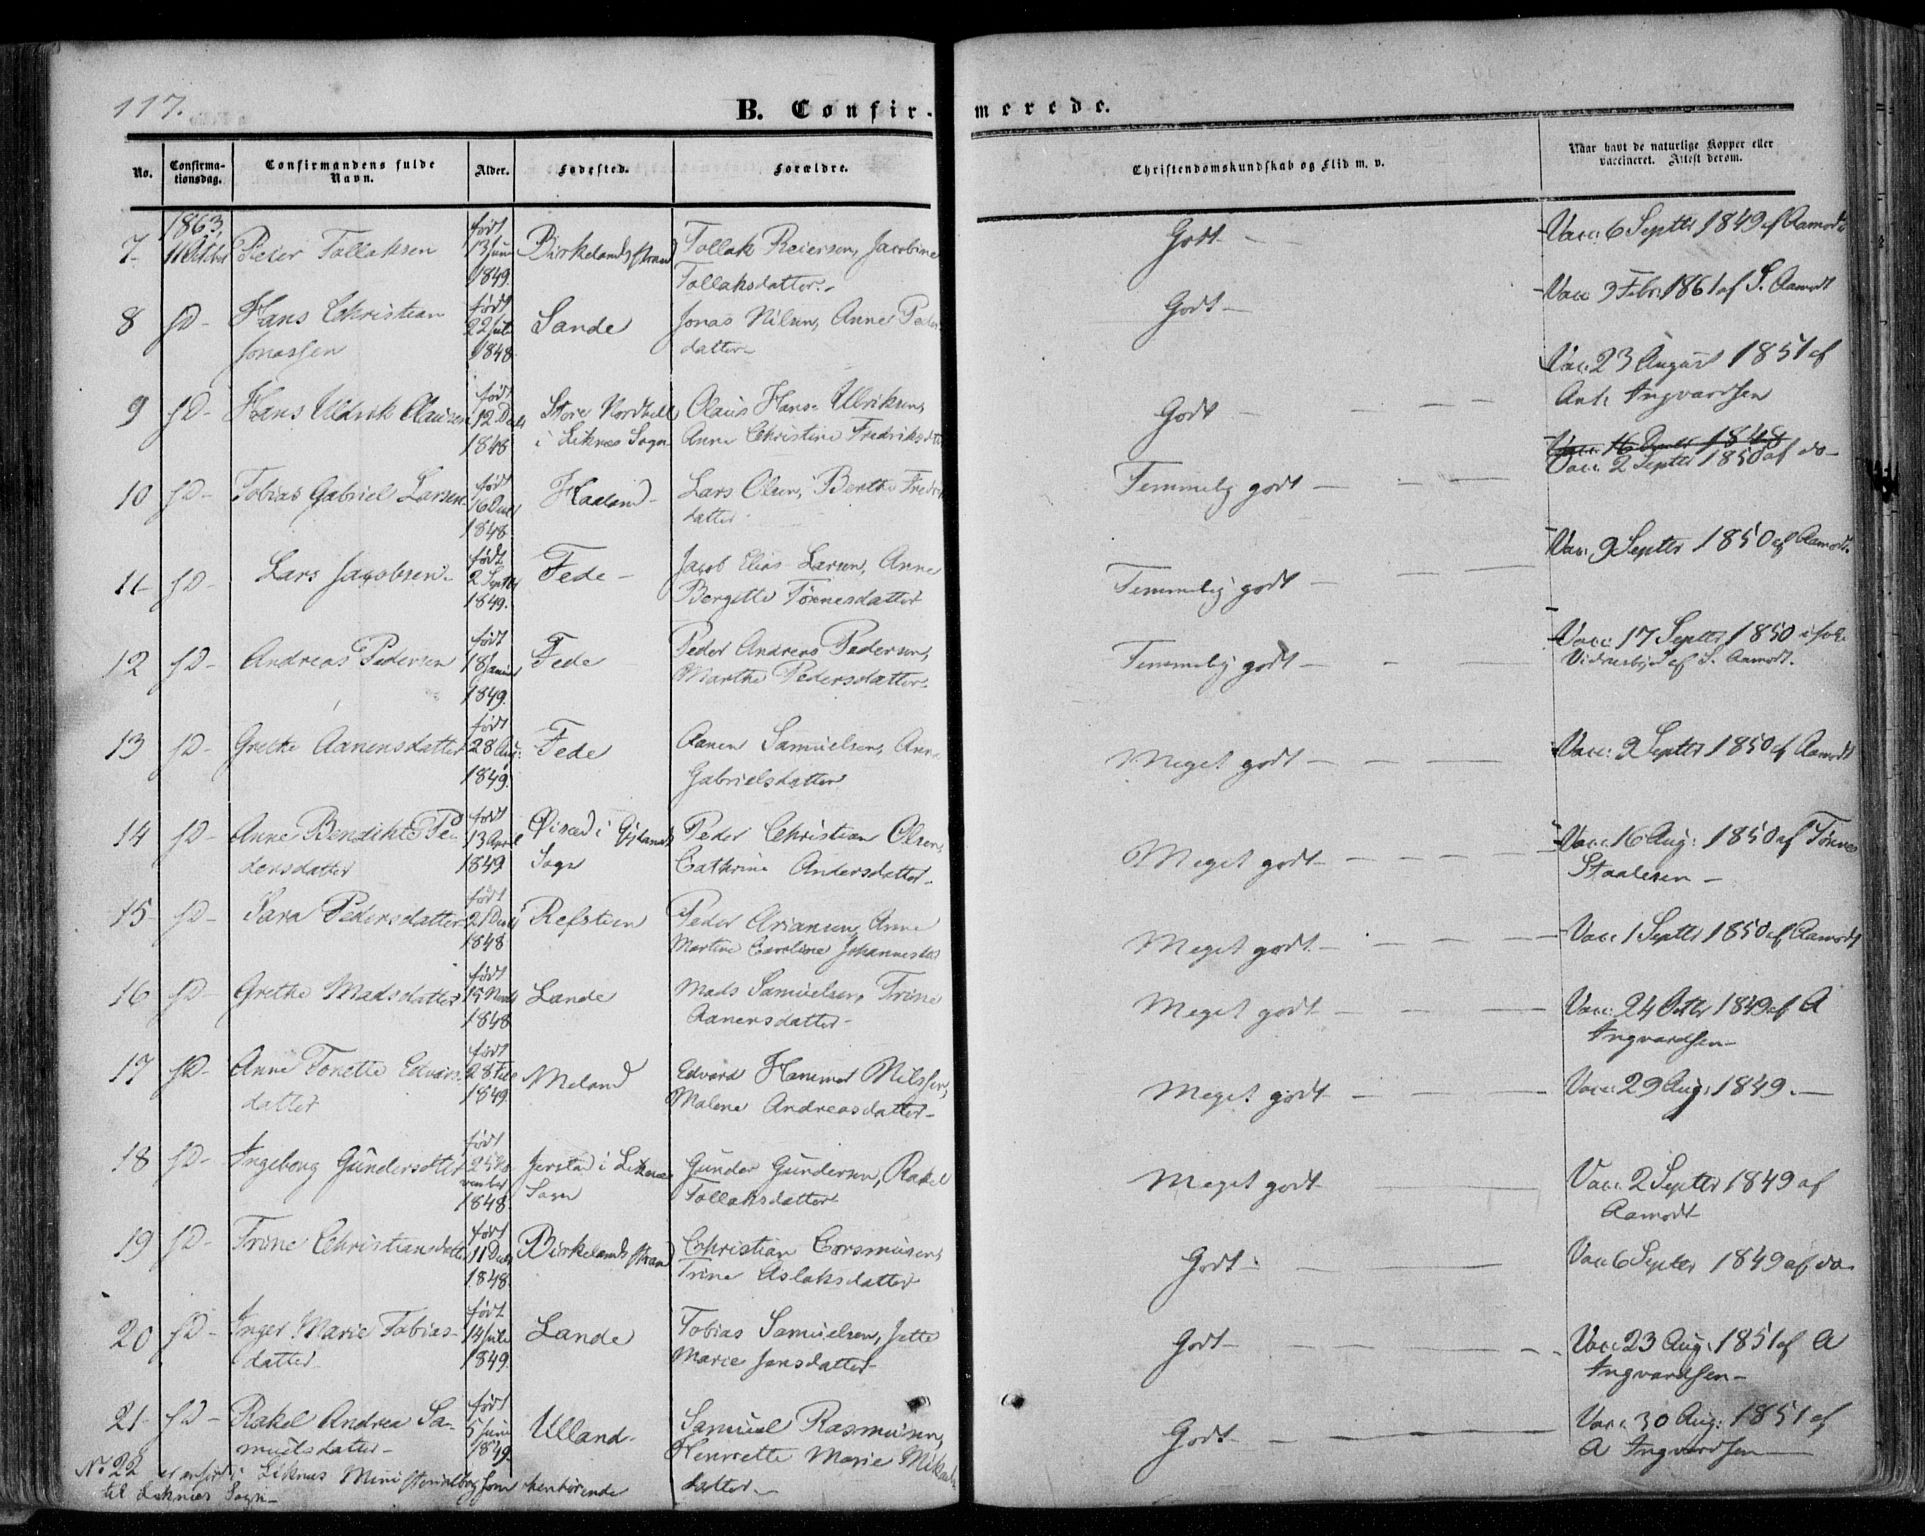 117.
B. Confir-
merede.
No.
Confirma-
tionsdag.
Confirmandens fulde
Navn.
Alder.
Fødested.
Forældre.
Christendomskundskab og Flid m. v.
Naar havt de naturlige Kopper eller
vaccineret. Attest derom.
1863
7 11 Octbr Peder Tollaksen født 13 Juni 1849. Birkelandsstrand Tollak Reiersen, Jacobine
Tollaksdatter.
Godt - Vacc: 6 Septbr 1849 af Aamodt
8 do- Hans Christian født 22 Juli 1848 Sande Jonas Nilsen, Anne Peder
Jonassen datter-
Godt - Vacc 3 Febr 1861 af S. Aamodt
9 do- Hans Uldrik Olausen født 12 Decb 1848 Store Nordhell Olaus Hans Ulriksen,
i Liknes Sogn Anne Christine Fredriksdtr
Godt - Vacc: 23 August 1851 af
Ant: Ingvardsen
10 do- Tobias Gabriel Larsen født 16 Decb 1848. Haaland- Lars Olsen, Berthe Fredr
datter
Temmelig godt - Vacc: 16 1848
Vacc 2 Septbr 1850 af do-
11 do- Lars Jacobsen- født 2 Septbr 1849. Fede- Jacob Elias Larsen, Anne
Bergitte Tønnesdatter
Temmelig godt - Vacc: 9 Septbr 1850 af Aamodt.
12 do- Andreas Pedersen født 18 Januar 1849. Fede Peder Andreas Pedersen,
Marthe Pedersdatter.
Temmelig godt - Vacc: 17 Septbr 1850 ifølge
Vidnesbyrd af S. Aamodt.
13 do- Grethe Aanensdatter født 28 Aug: 1849. Fede Aanen Samuelsen, Anne
Gabrielsdatter
Meget godt - Vacc: 2 Septbr 1850 af Aamodt
14 do- Anne Bendikte Pe- født 13 April 1849 i Gylands Peder Christian Olsen,
dersdatter Sogn Cathrine Andersdatter-
Meget godt - Vacc: 16 Aug: 1850 af Tønnes
Staalesen -
15 do- Sara Pedersdatter født 21 Decb 1848 Refsteen Peder Ariansen, Anne
Martine Caroline Johannesdat
Meget godt - Vacc 1 Septbr 1850 af Aamodt
16 do- Grethe Madsdatter født 15 Novb 1848 Lande Mads Samuelsen, Trine
Aanensdatter-
Meget godt - Vacc: 24 Octbr 1849 af A
Ingvardsen-
17 do- Anne Tonette Edvars- født 28 Feb 1849 Meland Edvard Hammer Nilssen,
datter Malene Andreasdatter-
Meget godt - Vacc: 29 Aug: 1849.-
18 do- Ingeborg Gundersdtter født 25 November 1848 Jerstad i Liknes Gunder Gundersen, Rakel
Sogn Tollaksdatter
Meget godt - Vacc 2 Septbr 1849 af
Aamodt-
19 do- Trine Christiansdatter født 11 Decb 1848 Birkelandsstrand Christian Corsmusen,
Trine Aslaksdatter
Godt - Vacc 6 Septbr 1849 af do-
20 do- Inger Marie Tobias- født 14 Juli 1849. Lande Tobias Samuelsen, Jette
datter Marie Jensdatter-
Godt - Vacc 23 Aug: 1851 af A
Ingvardsen-
21 do- Rakel Andrea Sa- født 5 Juni 1849. Ulland- Samuel Rasmusen,
muelsdatter- Henriette Marie Mikals
datter-
Godt - Vacc 30 Aug: 1851 af
A Ingvardsen
No 22 er anført i Liknes Ministerialbog som henhørende
til Liknes Sogn-